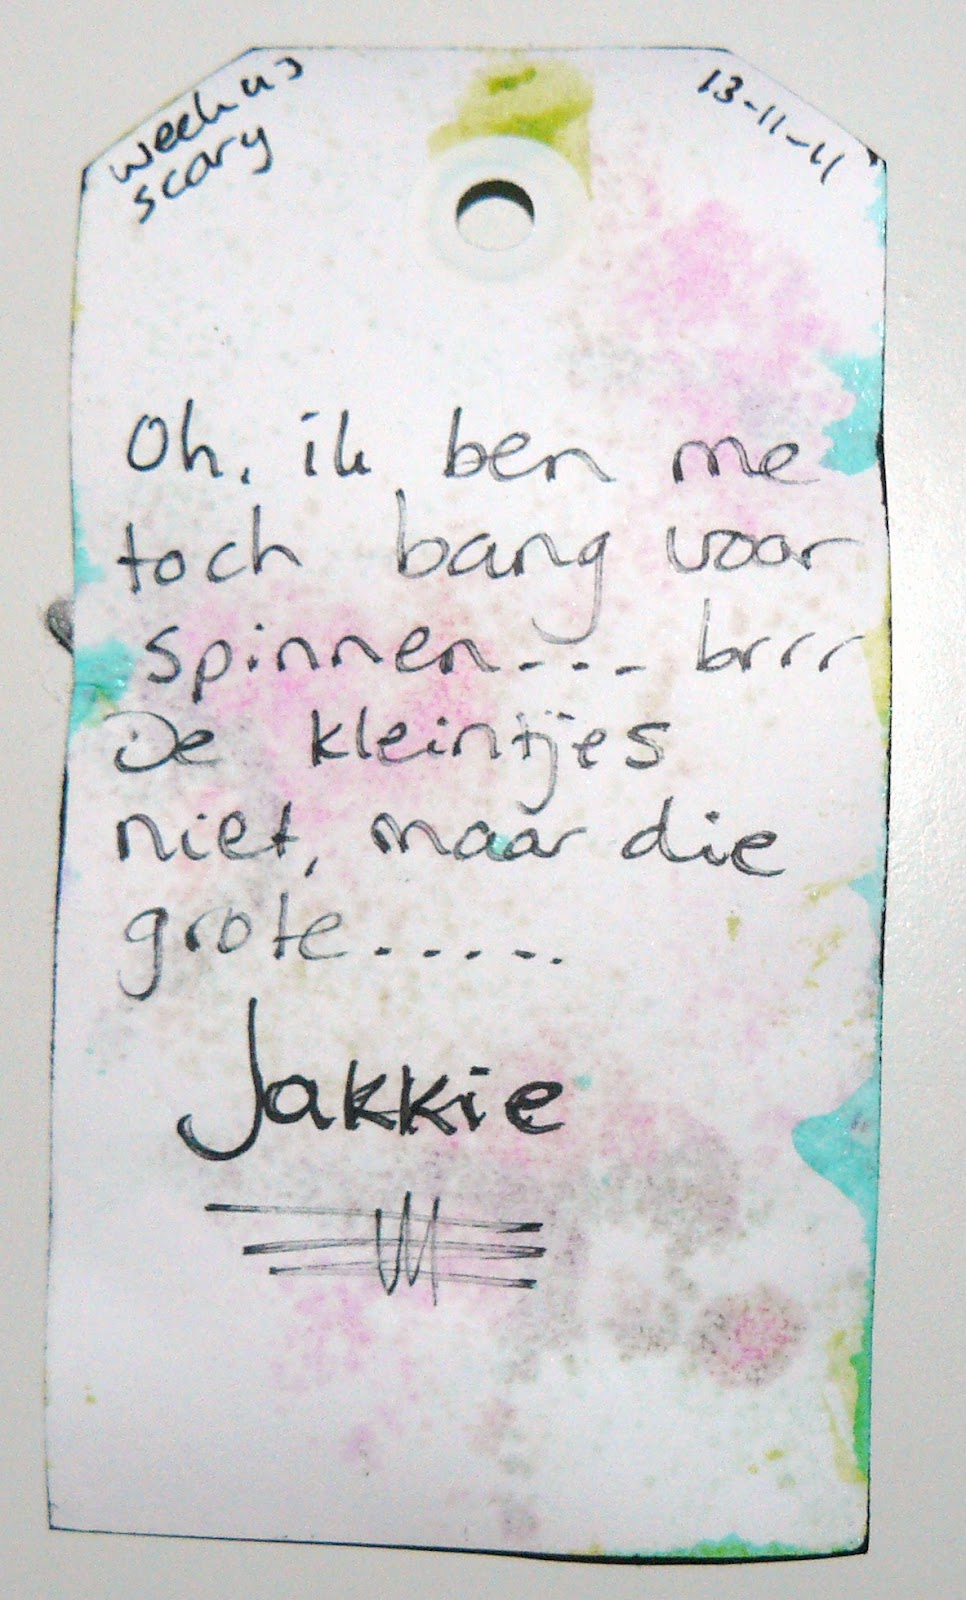 week
scary
13-11-11
Oh, ik ben me
toch bang voor
spinnen... brrr
De kleintjes
niet, maar die
grote......
Jakkie